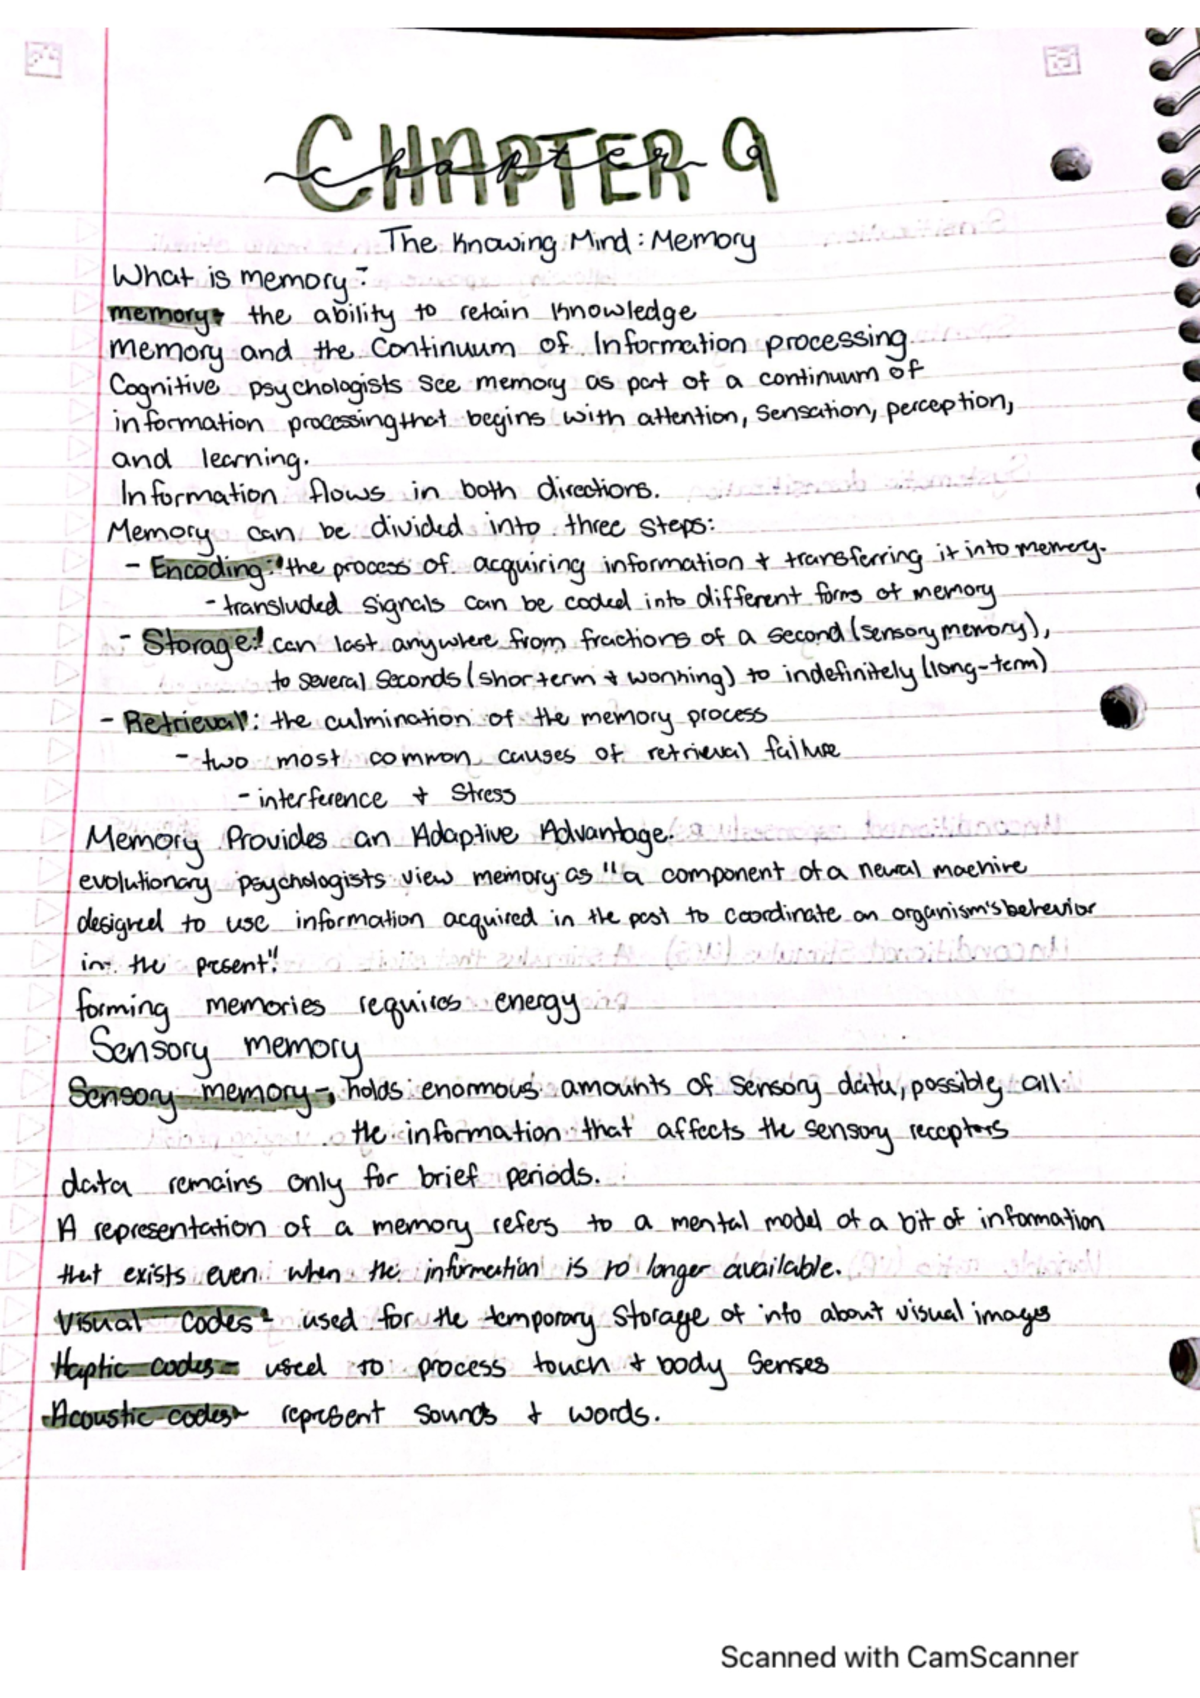 CHAPTER 9
chapter
The Knowing Mind: Memory
What is memory?
memory- the ability to retain knowledge
Memory and the Continuum of Information processing.
Cognitive psychologists see memory as part of a continuum of
information processing that begins with attention, sensation, perception,
and learning.
Information flows in both directions.
Memory can be divided into three steps:
- Encoding: the process of acquiring information + transferring it into memory.
- transluded signals can be coded into different forms of memory
- Storage: can last anywhere from fractions of a second (sensory memory),
to several seconds (short term + working) to indefinitely (long-term)
- Retrieval: the culmination of the memory process
- two most common causes of retrieval failure
- interference + Stress
Memory Provides an Adaptive Advantage.
evolutionary psychologists view memory as "a component of a neural machine
designed to use information acquired in the past to coordinate an organism's behavior
in the present."
forming memories requires energy
Sensory memory
Sensory memory- holds enormous amounts of sensory data, possible all
the information that affects the sensory receptors
data remains only for brief periods.
A representation of a memory refers to a mental model of a bit of information
that exists even when the information is no longer available.
Visual codes- used for the temporary storage of info about visual images
Haptic codes- used to process touch + body senses
Acoustic codes- represent sounds + words.
Scanned with CamScanner